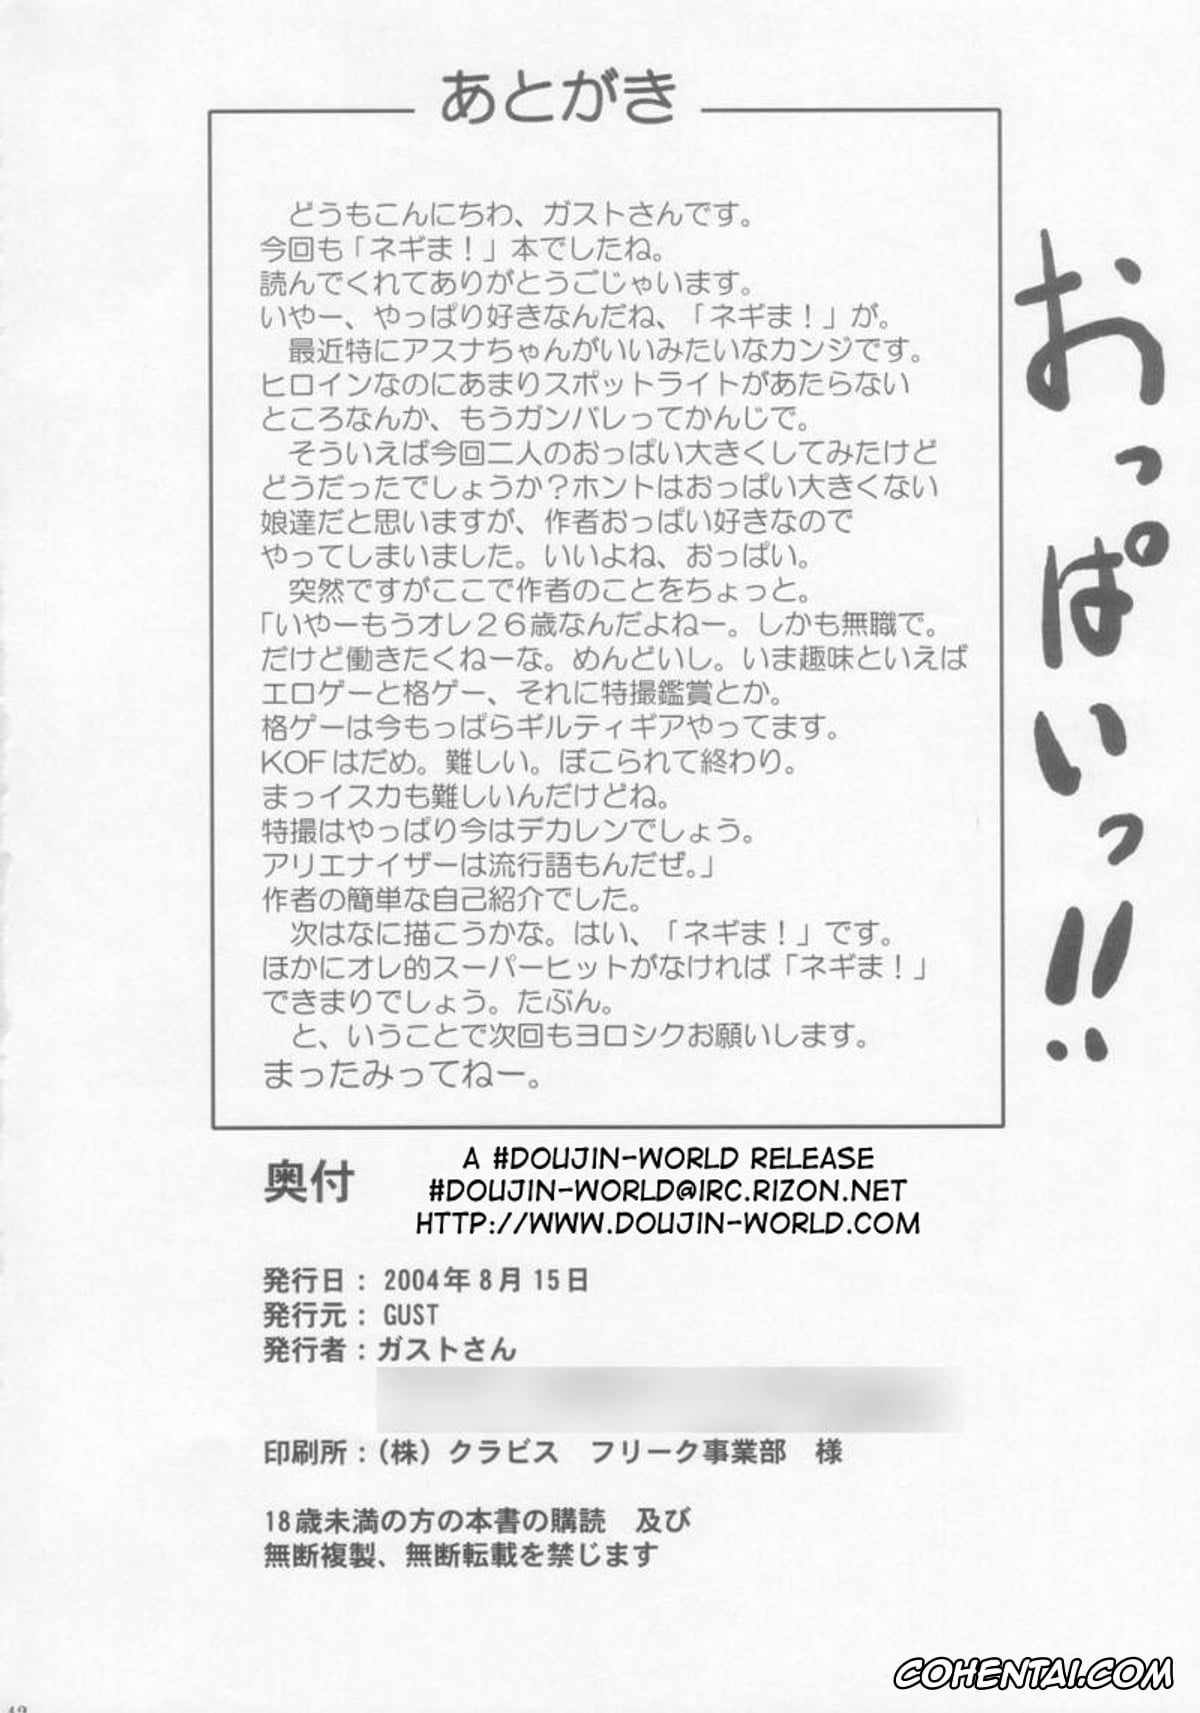 あとがき
どうもこんにちわ、ガストさんです。
今回も「ネギま！」本でしたね。
読んでくれてありがとうごじゃいます。
いやー、やっぱり好きなんだね、「ネギま！」が。
最近特にアスナちゃんがいいみたいなカンジです。
ヒロインなのにあまりスポットライトがあたらない
ところなんか、もうガンバレってかんじで。
そういえば今回二人のおっぱい大きくしてみたけど
どうだったでしょうか？ホントはおっぱい大きくない
娘達だと思いますが、作者おっぱい好きなので
やってしまいました。いいよね、おっぱい。
突然ですがここで作者のことをちょっと。
「いやーもうオレ２６歳なんだよねー。しかも無職で。
だけど働きたくねーな。めんどいし。いま趣味といえば
エロゲーと格ゲー、それに特撮鑑賞とか。
格ゲーは今もっぱらギルティギアやってます。
KOFはだめ。難しい。ぼこられて終わり。
まっイスカも難しいんだけどね。
特撮はやっぱり今はデカレンでしょう。
アリエナイザーは流行語もんだぜ。」
作者の簡単な自己紹介でした。
次はなに描こうかな。はい、「ネギま！」です。
ほかにオレ的スーパーヒットがなければ「ネギま！」
できまりでしょう。たぶん。
と、いうことで次回もヨロシクお願いします。
まったみってねー。
おっぱいっ!!
奥付
A #DOUJIN-WORLD RELEASE
#DOUJIN-WORLD@IRC.RIZON.NET
HTTP://WWW.DOUJIN-WORLD.COM
発行日： 2004年８月15日
発行元： GUST
発行者：ガストさん
印刷所：（株）クラビス　フリーク事業部　様
18歳未満の方の本書の購読　及び
無断複製、無断転載を禁じます
COHENTAI.COM